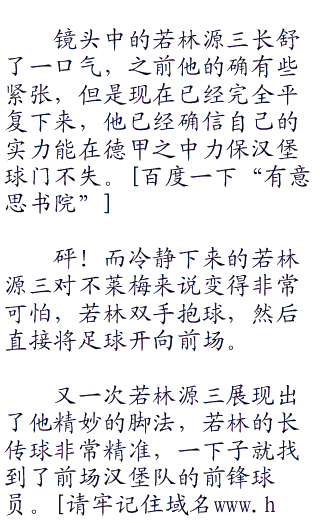 镜头中的若林源三长舒
了一口气，之前他的确有些
紧张，但是现在已经完全平
复下来，他已经确信自己的
实力能在德甲之中力保汉堡
球门不失。[百度一下“有意
思书院”]
砰！而冷静下来的若林
源三对不莱梅来说变得非常
可怕，若林双手抱球，然后
直接将足球开向前场。
又一次若林源三展现出
了他精妙的脚法，若林的长
传球非常精准，一下子就找
到了前场汉堡队的前锋球
员。[请牢记住域名www.h